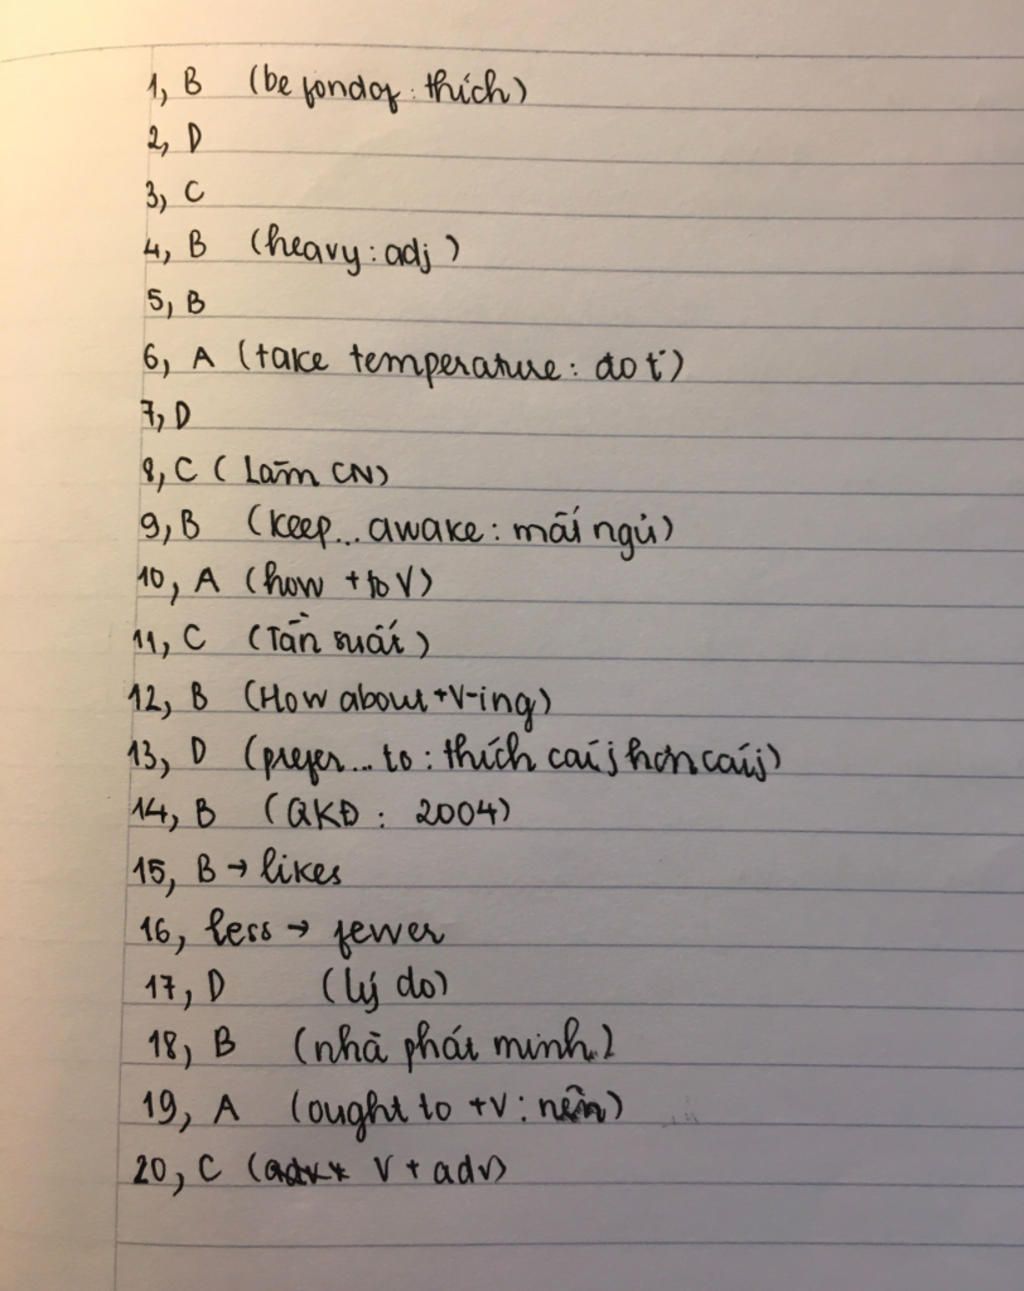 1, B (be fond of : thích)
2, D
3, C
4, B (heavy : adj)
5, B
6, A (take temperature : đo t°)
7, D
8, C ( Làm CN)
9, B (keep... awake : mãi ngủ)
10, A (how + to V)
11, C (Tần suất)
12, B (How about + V-ing)
13, D (prefer... to : thích cái j hơn cái j)
14, B (QKĐ : 2004)
15, B → likes
16, less → fewer
17, D (lý do)
18, B (nhà phát minh)
19, A (ought to + V : nên)
20, C (V + adv)